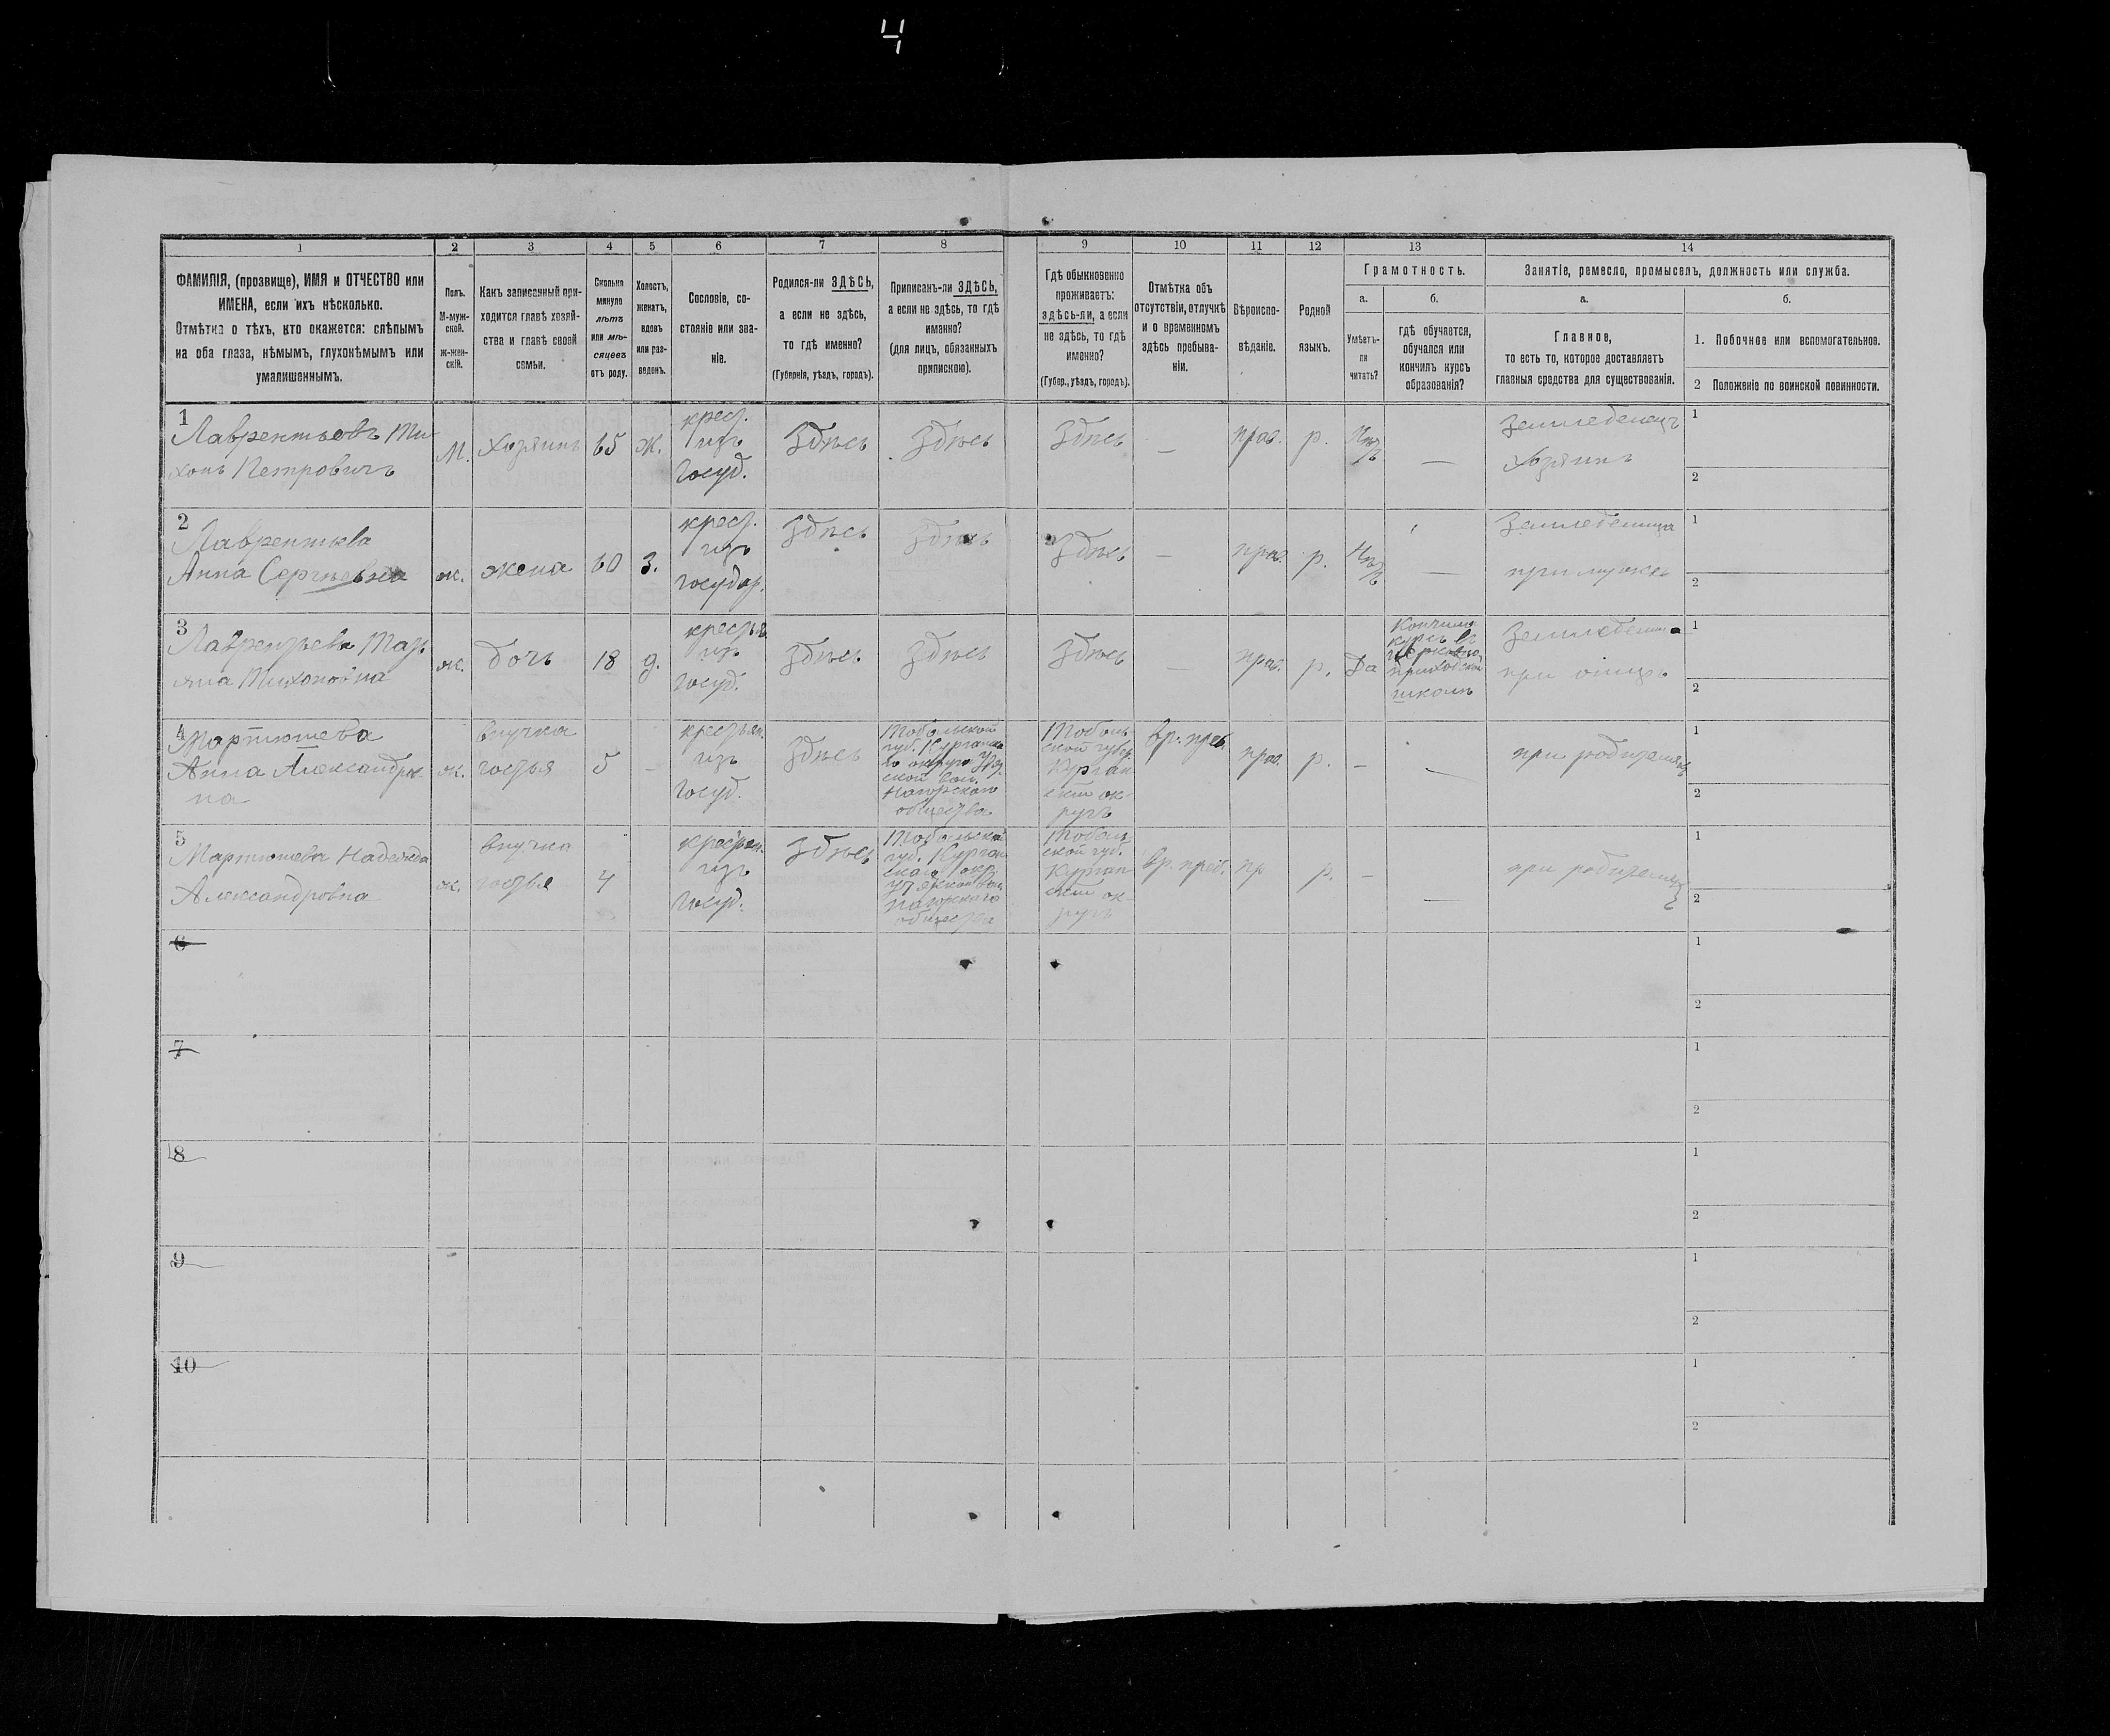 4
1
2
3
4
5
6
7
8
9
10
11
12
13
14
ФАМИЛІЯ, (прозвище), ИМЯ и ОТЧЕСТВО или
ИМЕНА, если ихъ нѣсколько.
Отмѣтка о тѣхъ, кто окажется: слѣпымъ
на оба глаза, нѣмымъ, глухонѣмымъ или
умалишеннымъ.
Полъ.
М-муж-
ской.
ж-жен-
скій.
Какъ записанный при-
ходится главѣ хозяй-
ства и главѣ своей
семьи.
Сколько
минуло
лѣтъ
или мѣ-
сяцевъ
отъ роду.
Холостъ,
женатъ,
вдовъ
или раз-
веденъ.
Сословіе, со-
стояніе или зва-
ніе.
Родился-ли ЗДѢСЬ,
а если не здѣсь,
то гдѣ именно?
(Губернія, уѣздъ, городъ).
Приписанъ-ли ЗДѢСЬ,
а если не здѣсь, то гдѣ
именно?
(для лицъ, обязанныхъ
припискою).
Гдѣ обыкновенно
проживаетъ:
здѣсь-ли, а если
не здѣсь, то гдѣ
именно?
(Губер., уѣздъ, городъ).
Отмѣтка объ
отсутствіи, отлучкѣ
и о временномъ
здѣсь пребыва-
ніи.
Вѣроиспо-
вѣданіе.
Родной
языкъ.
Грамотность.
а.
б.
Умѣетъ-
ли
читать?
гдѣ обучается,
обучался или
кончилъ курсъ
образованія?
Занятіе, ремесло, промыселъ, должность или служба.
а.
б.
Главное,
то есть то, которое доставляетъ
главныя средства для существованія.
1. Побочное или вспомогательное.
2 Положеніе по воинской повинности.
1
Лаврентьевъ Ти-
хонъ Петровичъ
М.
Хозяинъ
65
Ж.
крест.
изъ
Госуд.
Здѣсь
Здѣсь
Здѣсь
—
прав.
р.
Нѣ
тъ
—
Земледелецъ
Хозяинъ
1
2
2
Лаврентьева
Анна Сергѣевна
ж.
жена
60
З.
крест.
изъ
Государ.
Здѣсь
Здѣсь
Здѣсь
—
прав.
р.
Нѣ
тъ
—
Земледелица
при мужѣ
1
2
3
Лаврентьева Тать
яна Тихоновна
ж.
дочь
18
д.
крестья.
изъ
Госуд.
Здѣсь
Здѣсь
Здѣсь
—
прав.
р.
Да
Кончила
курсъ въ
Церковно-
приходской
школѣ
Земледелица
при отцѣ
1
2
4
Мартюшева
Анна Александров
на
ж.
внучка
гостья
5
-
крестьян.
изъ
Госуд.
Здѣсь
Тобольской
губ. Курганска
го округа
ской вол.
Нагорскаго
общества
Тоболь-
ской губер
Курган
скій ок-
ругъ
вр. преб.
прав.
р.
—
—
при родителяхъ
1
2
5
Мартюшева Надежда
Александровна
ж.
внучка
гостья
4
крестьян.
изъ
Госуд.
Здѣсь
Тобольской
губ. Курган
скаго окр.
Нагорскаго
общества
Тоболь-
ской губ.
Курган-
скій ок-
ругъ
вр. преб.
пр
р.
—
—
при родителяхъ
1
2
6
1
2
7
1
2
8
1
2
9
1
2
10
1
2